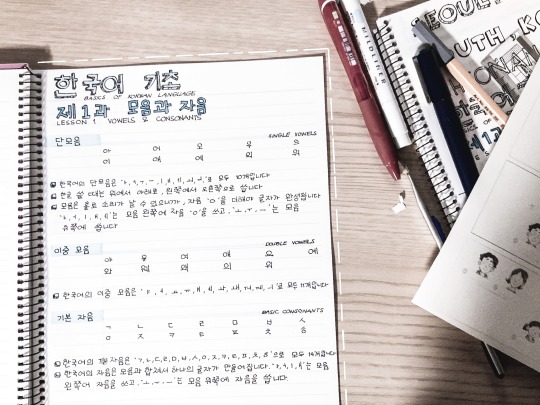 한국어 기초
BASICS OF KOREAN LANGUAGE
제1과 모음과 자음
LESSON 1 VOWELS & CONSONANTS
단모음 SINGLE VOWELS
아 어 오 우 으
이 애 에 외 위
한국어의 단모음은 모두 10개입니다
한글 쓸 때는 위에서 아래로, 왼쪽에서 오른쪽으로 씁니다
모음은 홀로 소리가 날 수 있으니까, 자음 'ㅇ'을 더해야 글자가 완성됩니다
'ㅏ, ㅓ, ㅣ, ㅐ, ㅔ'는 모음 왼쪽에 자음 'ㅇ'을 쓰고, 'ㅗ, ㅜ, ㅡ'는 모음
위쪽에 씁니다
이중 모음 DOUBLE VOWELS
야 여 얘 요 예
와 워 왜 의 위
한국어의 이중 모음은 모두 11개입니다
기본 자음 BASIC CONSONANTS
ㄱ ㄴ ㄷ ㄹ ㅁ ㅂ ㅅ
ㅇ ㅈ ㅋ ㅌ ㅍ ㅊ ㅎ
한국어의 기본 자음은 'ㄱ, ㄴ, ㄷ, ㄹ, ㅁ, ㅂ, ㅅ, ㅇ, ㅈ, ㅊ, ㅋ, ㅌ, ㅍ, ㅎ'으로 모두 14개입니다
한국어의 자음은 모음과 합쳐서 하나의 글자가 만들어집니다. 'ㅏ, ㅓ, ㅣ, ㅐ'는 모음
왼쪽에 자음을 쓰고, 'ㅗ, ㅜ, ㅡ'는 모음 위쪽에 자음을 씁니다.
MILDLINER
SEOUL
SOUTH, KO
제1